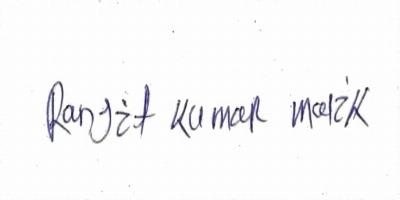 Ranjit Kumar malik